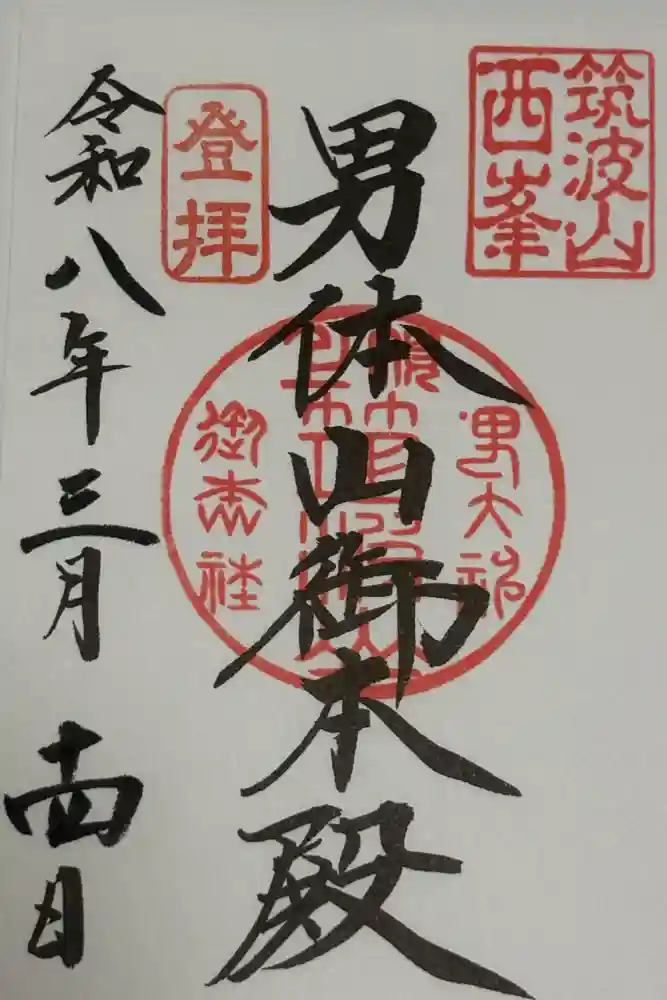 筑波山
西峯
男体山御本殿
登拝
御本社
令和八年三月十四日